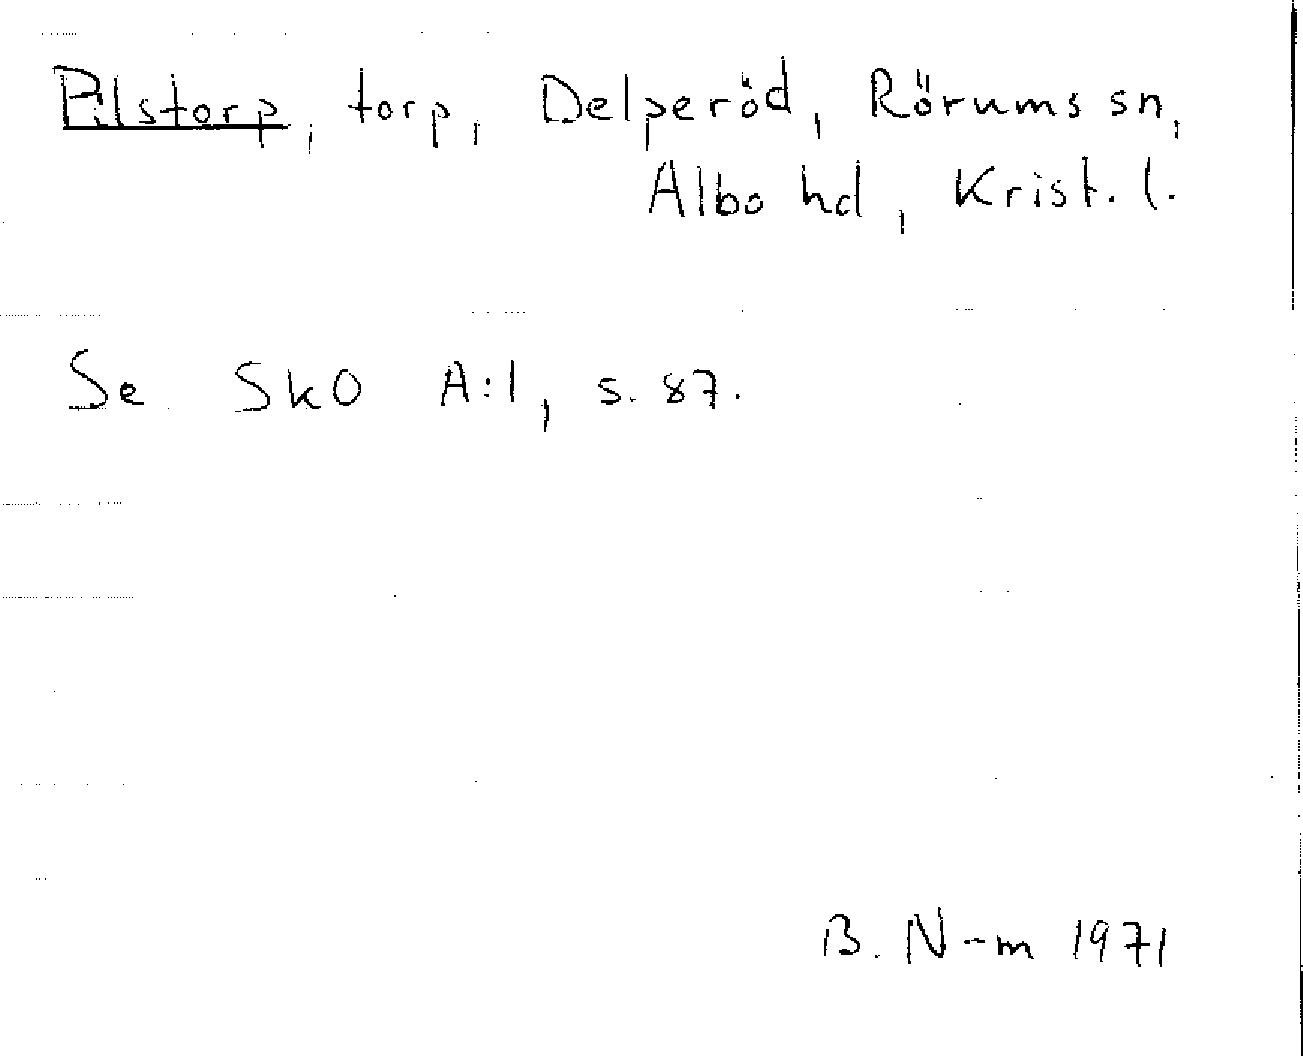 Pilstorp, torp, Delperöd, Rörums sn,
Albo hd, Krist. l.
Se SkO A:1, s. 87.
B. N-m 1971